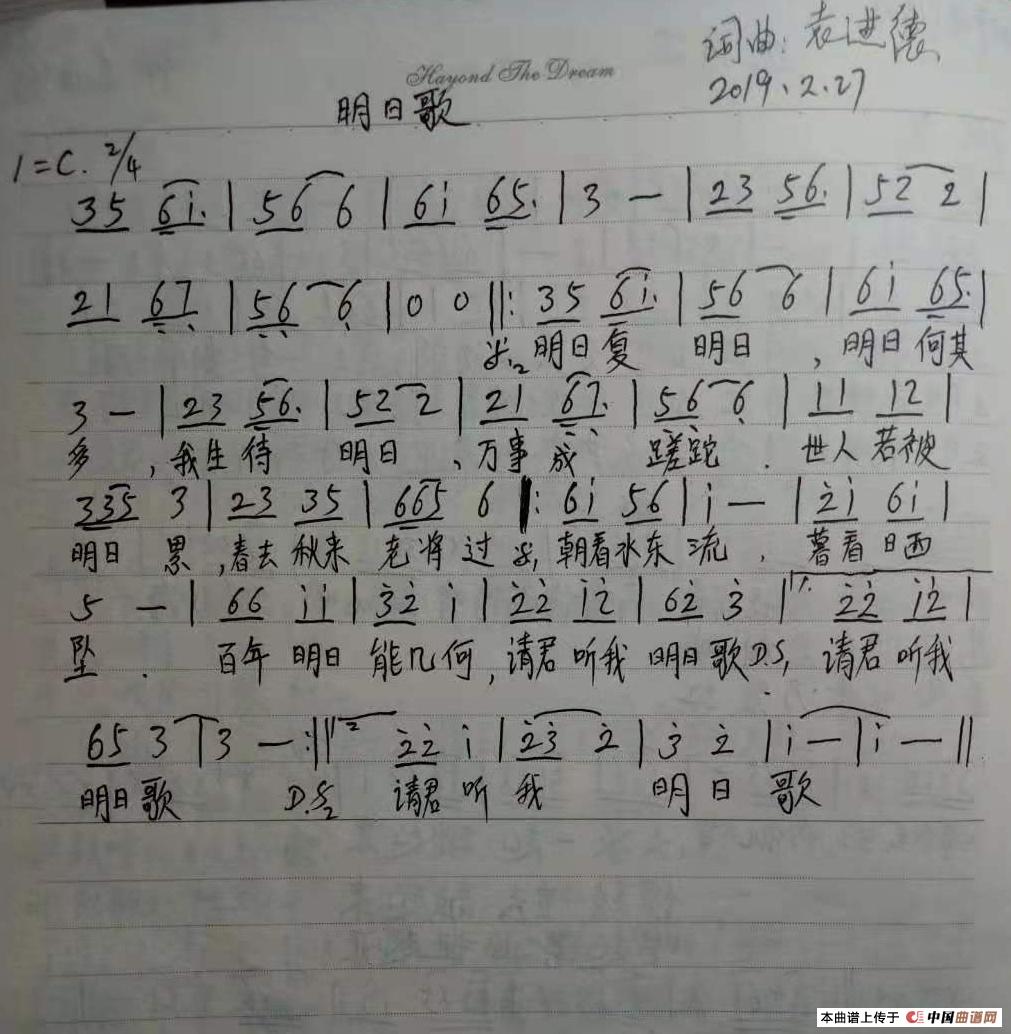 词曲:袁进德
Hayond The Dream
2019.2.27
明日歌
1=C. 2/4
35 6i. | 56 6 | 6i 65. | 3 — | 23 56. | 52 2 |
21 67. | 56 6 | 0 0 ||: 35 6i. | 56 6 | 6i 65. |
明日复 明日 , 明日 何其
3 — | 23 56. | 52 2 | 21 67. | 56 6 | 11 12 |
多 , 我生待 明日 、万事 成 蹉跎 . 世人 若被
335 3 | 23 35 | 665 6 |: 6i 56 | i — | 2i 6i |
明日 累 ,春去 秋来 老将 过 朝看水东 流 . 暮看 日西
5 — | 66 ii | 32 i | 22 i2 | 62 3 | 1. 22 i2 |
坠 . 百年 明日 能几何, 请君 听我 明日歌 D.S, 请君 听我
65 3 | 3 — :|| 2 22 i | 23 2 | 3 2 | i — | i — ||
明日歌 D.S2 请君 听 我 明 日 歌
本曲谱上传于 中国曲谱网